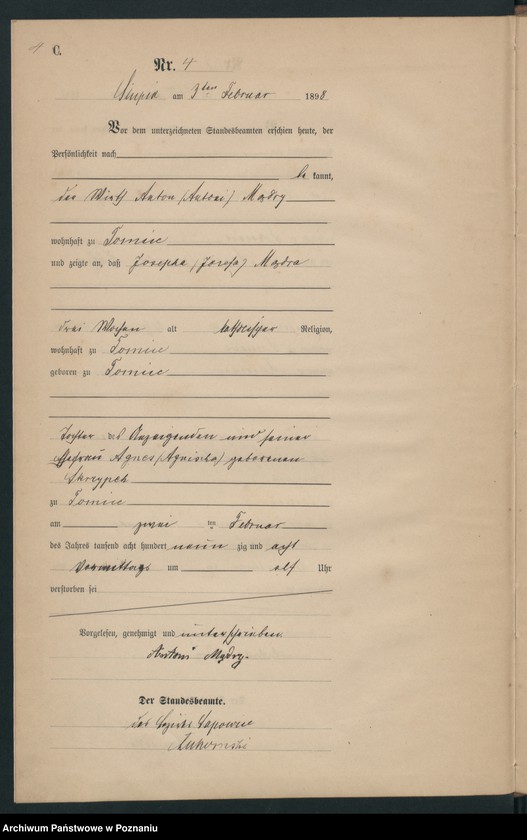 4 C.
Nr. 4
Słupia am 3ten Februar 1898
Vor dem unterzeichneten Standesbeamten erschien heute, der
Persönlichkeit nach
be kannt,
der Wirth Anton (Antoni) Mądry
wohnhaft zu Tomice
und zeigte an, daß Josepha (Józefa) Mądra
drei Wochen alt katholischer Religion,
wohnhaft zu Tomice
geboren zu Tomice
Tochter des Anzeigenden und seiner
Ehefrau Agnes (Agnieszka) geborenen
Skrzypek
zu Tomice
am zwei ten Februar
des Jahres tausend acht hundert neun zig und acht
Vormittags um elf Uhr
verstorben sei
Vorgelesen, genehmigt und unterschrieben.
Antoni Mądry.
Der Standesbeamte.
Archiwum Państwowe w Poznaniu